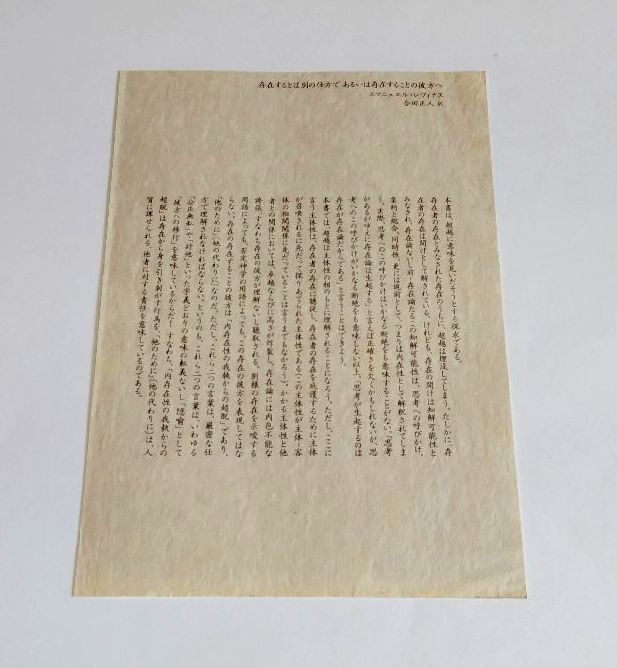 存在するとは別の仕方で あるいは存在することの彼方へ
エマニュエル・レヴィナス
合田正人 訳
本書は、超越に意味を見いだそうとする探求である。
存在者の存在とみなされた存在のうちに、超越は埋没してしまう。たしかに、存
在者の存在は開けとして解されている。けれども、存在の開けは知解可能性と
みなされ、存在論ないし前-存在論たるこの知解可能性は、思考への呼びかけ、
集約と総合、同時性、更には現前として、つまりは内在性として解釈されてしま
う。実際、思考へのこの呼びかけはいかなる断絶をも意味することがない。「思考
があるがゆえに存在論は生起する」と言えば正確さを欠くかもしれないが、思
考へのこの呼びかけがいかなる断絶をも意味しない以上、「思考が生起するのは
存在が存在論だからである」と言うことはできよう。
本書では、超越は主体性の相のもとに理解されることになろう。ただし、ここに
言う主体性は、存在者の存在に聴従し、存在者の存在を庇護するために主体
が召喚されるに先だって探りあてられた主体性である(この主体性が主体-客
体の相関関係に先だっていることは言うまでもなかろう)。かかる主体性と他
者との関係においては、卓越ならびに高さが炸裂し、存在論には内包不能な
誇張、すなわち存在の彼方が理解ないし聴取される。別様の存在を示唆する
用語によっても、否定神学の用語によっても、この存在の彼方を表現してはな
らない。存在の存在することの彼方は「内存在性の我執からの超脱」であり、
「他のために」(他の代わりに)なのだ。ただし、これら二つの言葉は、厳密な仕
方で理解されなければならない。というのも、これら二つの言葉は、いわゆる
「公正無私」や「対他」といった字義どおりの意味の転義ないし「隠喩」として
「彼方への移行」を意味しているからだ。すなわち、「内存在性の我執からの
超脱」は存在から身を引き剥がす行為を、「他のために」(他の代わりに)は、人
質に課せられる、他者に対する責任を意味しているのである。